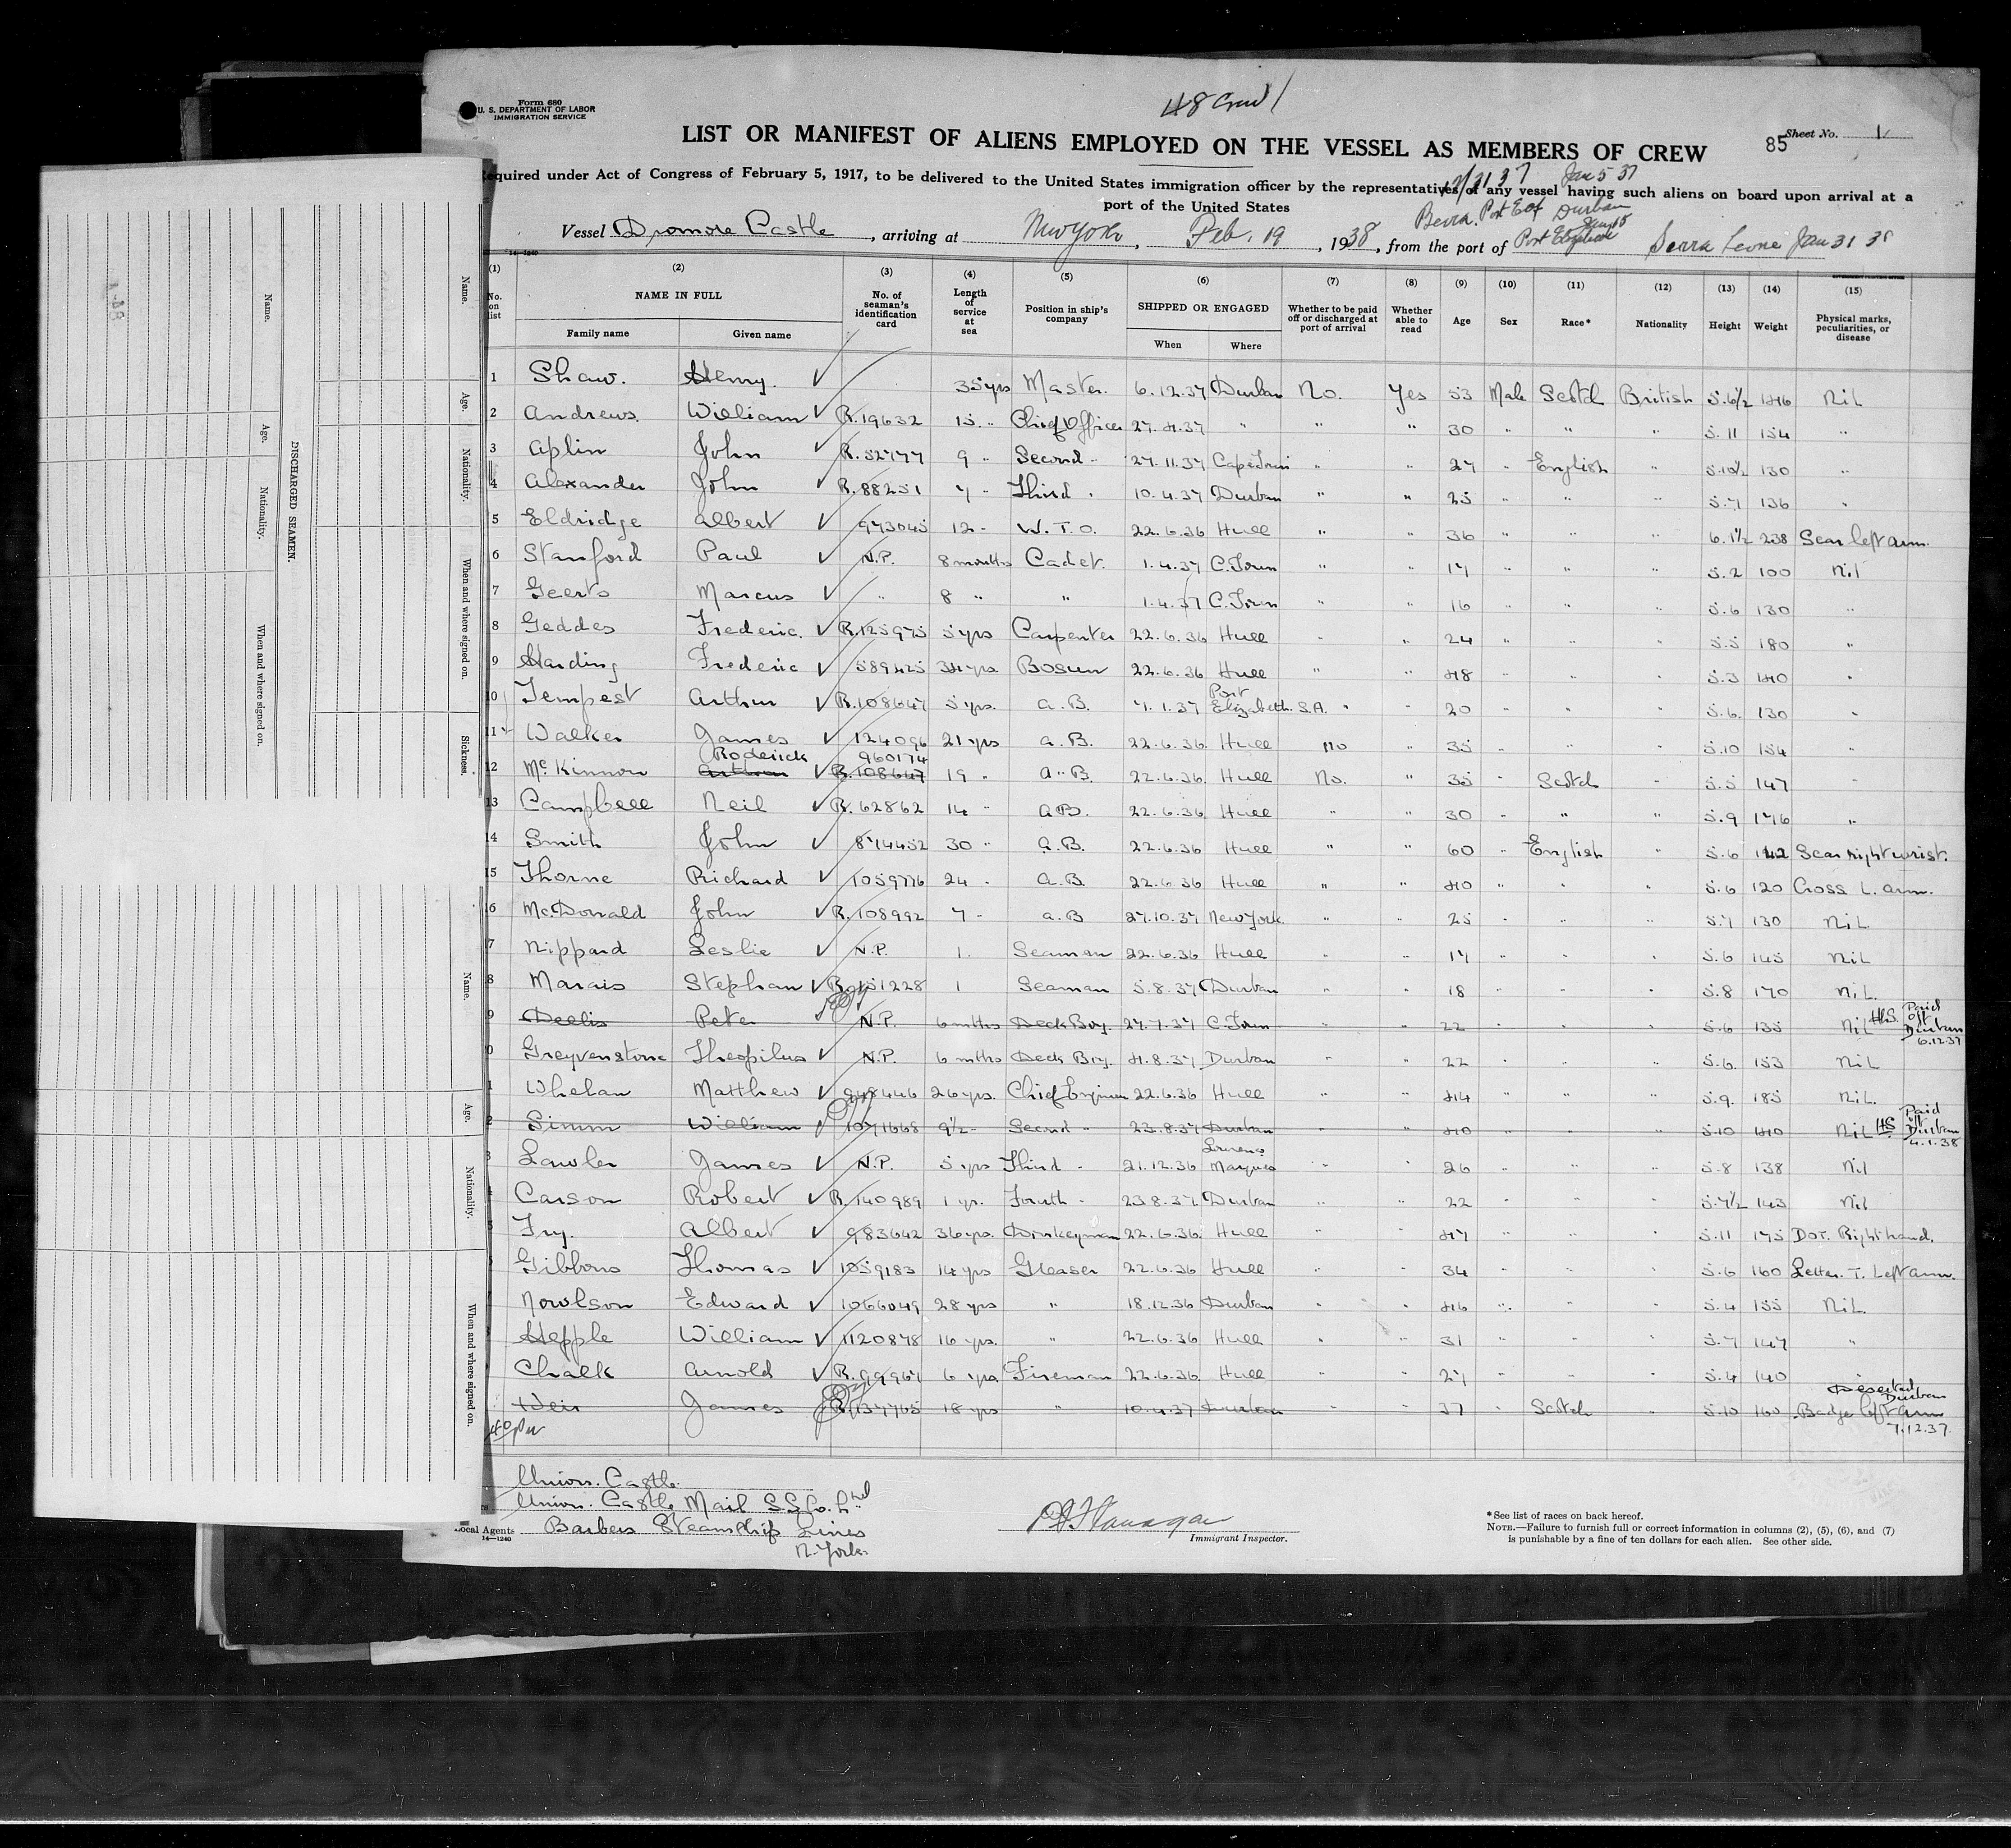 Form 680
U. S. DEPARTMENT OF LABOR
IMMIGRATION SERVICE
48 Crew
LIST OR MANIFEST OF ALIENS EMPLOYED ON THE VESSEL AS MEMBERS OF CREW
85 Sheet No. 1
Required under Act of Congress of February 5, 1917, to be delivered to the United States immigration officer by the representatives of any vessel having such aliens on board upon arrival at a
port of the United States
12/21 37 Jan 5 37
Beira. Port Durban
Vessel Dromore Castle, arriving at New York, Feb. 19, 1938, from the port of Port Elizabeth Sierra Leone Jan 31 38
14—1240
(1) (2) (3) (4) (5) (6) (7) (8) (9) (10) (11) (12) (13) (14) (15)
No. on list NAME IN FULL Family name Given name No. of seaman's identification card Length of service at sea Position in ship's company SHIPPED OR ENGAGED When Where Whether to be paid off or discharged at port of arrival Whether able to read Age Sex Race* Nationality Height Weight Physical marks, peculiarities, or disease
1 Shaw. Henry. 35 yrs Master. 6.12.37 Durban No. Yes 53 Male Scotch British 5.6½ 146 Nil
2 Andrews. William R.19632 15 " Chief Officer 27.4.37 " " " 30 " " " 5.11 154 "
3 Aplin John R.52777 9 " Second " 27.11.37 Cape Town " " 27 " English " 5.10½ 130 "
4 Alexander John R.88251 7 " Third " 10.4.37 Durban " " 25 " " " 5.7 136 "
5 Eldridge Albert 973045 12 " W.T.O. 22.6.36 Hull " " 36 " " " 6.1½ 238 Scar left arm.
6 Stanford Paul N.P. 8 months Cadet. 1.4.37 C.Town " " 17 " " " 5.2 100 Nil
7 Geerts Marcus " 8 " " 1.4.37 C.Town " " 16 " " " 5.6 130 "
8 Geddes Frederic. R.125975 5 yrs Carpenter 22.6.36 Hull " " 24 " " " 5.5 180 "
9 Harding Frederic 589425 34 yrs. Bosun 22.6.36 Hull " " 48 " " " 5.3 140 "
10 Tempest Arthur R.108647 5 yrs. A.B. 7.1.37 Port Elizabeth. S.A. " " 20 " " " 5.6. 130 "
11 Walker James 124096 21 yrs A.B. 22.6.36. Hull No " 35 " " " 5.10 154 "
Roderick 960174
12 McKinnon Arthur R.108647 19 " A.B. 22.6.36. Hull No. " 35 " Scotch " 5.5 147 "
13 Campbell Neil R.62862 14 " A.B. 22.6.36 Hull " " 30 " " " 5.9 176 "
14 Smith John 874452 30 " A.B. 22.6.36 Hull " " 60 " English " 5.6 142 Scar right wrist.
15 Thorne Richard 1059776 24 " A.B. 22.6.36 Hull " " 40 " " " 5.6 120 Cross L. arm.
6 McDonald John R.108992 7 " A.B 27.10.37 New York. " " 25 " " " 5.7 130 Nil
7 Nippard Leslie N.P. 1. Seaman 22.6.36 Hull " " 17 " " " 5.6 145 Nil
8 Marais Stephan R.151228 1 Seaman 5.8.37 Durban " " 18 " " " 5.8 170 Nil.
9 Peter N.P. 6 mths Deck Boy. 27.7.37 C.Town " " 22 " " " 5.6 135 Nil H.S. Paid off Durban 6.12.37
0 Greyvenstone Theopilus N.P. 6 mths Deck Boy. 4.8.37 Durban " " 22 " " " 5.6. 153 Nil
1 Whelan Matthew 948446 26 yrs. Chief Engineer 22.6.36 Hull " " 44 " " " 5.9. 185 Nil.
2 Simm William 1071668 9½ " Second " 23.8.37 Durban " " 40 " " " 5.10 140 Nil HS Paid off Durban 4.1.38
3 Lawler James N.P. 5 yrs Third " 21.12.36 Lourenco Marques " " 26 " " " 5.8 138 Nil
4 Carson Robert R.140989 1 yr. Fourth " 23.8.37 Durban " " 22 " " " 5.7½ 143 Nil
5 Fry. Albert 983642 36 yrs. Donkeyman 22.6.36. Hull " " 47 " " " 5.11 175 Dot. Right hand.
Gibbons Thomas 1059183 14 yrs Greaser 22.6.36 Hull " " 34 " " " 5.6 160 Letter. T. Left arm.
Nowlson Edward 1066049 28 yrs " 18.12.36 Durban " " 46 " " " 5.4 155 Nil.
Hepple William 1120878 16 yrs. " 22.6.36 Hull " " 31 " " " 5.7 147 "
Chalk Arnold R.99961 6 yrs Fireman 22.6.36 Hull " " 27 " " " 5.4 140
Weir James R.137765 18 yrs " 10.4.37 Durban " " 37 " Scotch " 5.10 160 Badge left arm Deserted Durban 7.12.37
Union. Castle.
Union. Castle Mail S.S.Co. Ltd
Local Agents Barbers Steamship Lines
N. York.
14—1240
Immigrant Inspector.
*See list of races on back hereof.
NOTE.—Failure to furnish full or correct information in columns (2), (5), (6), and (7)
is punishable by a fine of ten dollars for each alien. See other side.
DISCHARGED SEAMEN.
Name.
Age.
Nationality.
When and where signed on.
Name.
Age.
Nationality.
When and where signed on.
Sickness.
Name.
Age.
Nationality.
When and where signed on.